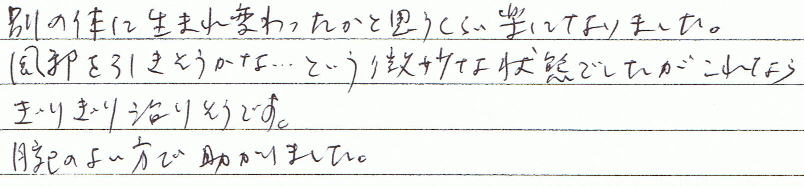 別の体に生まれ変わったかと思うくらい楽になりました。
風邪を引きそうかな…という微妙な状態でしたがこれなら
ぎりぎり治りそうです。
腕のよい方で助かりました。